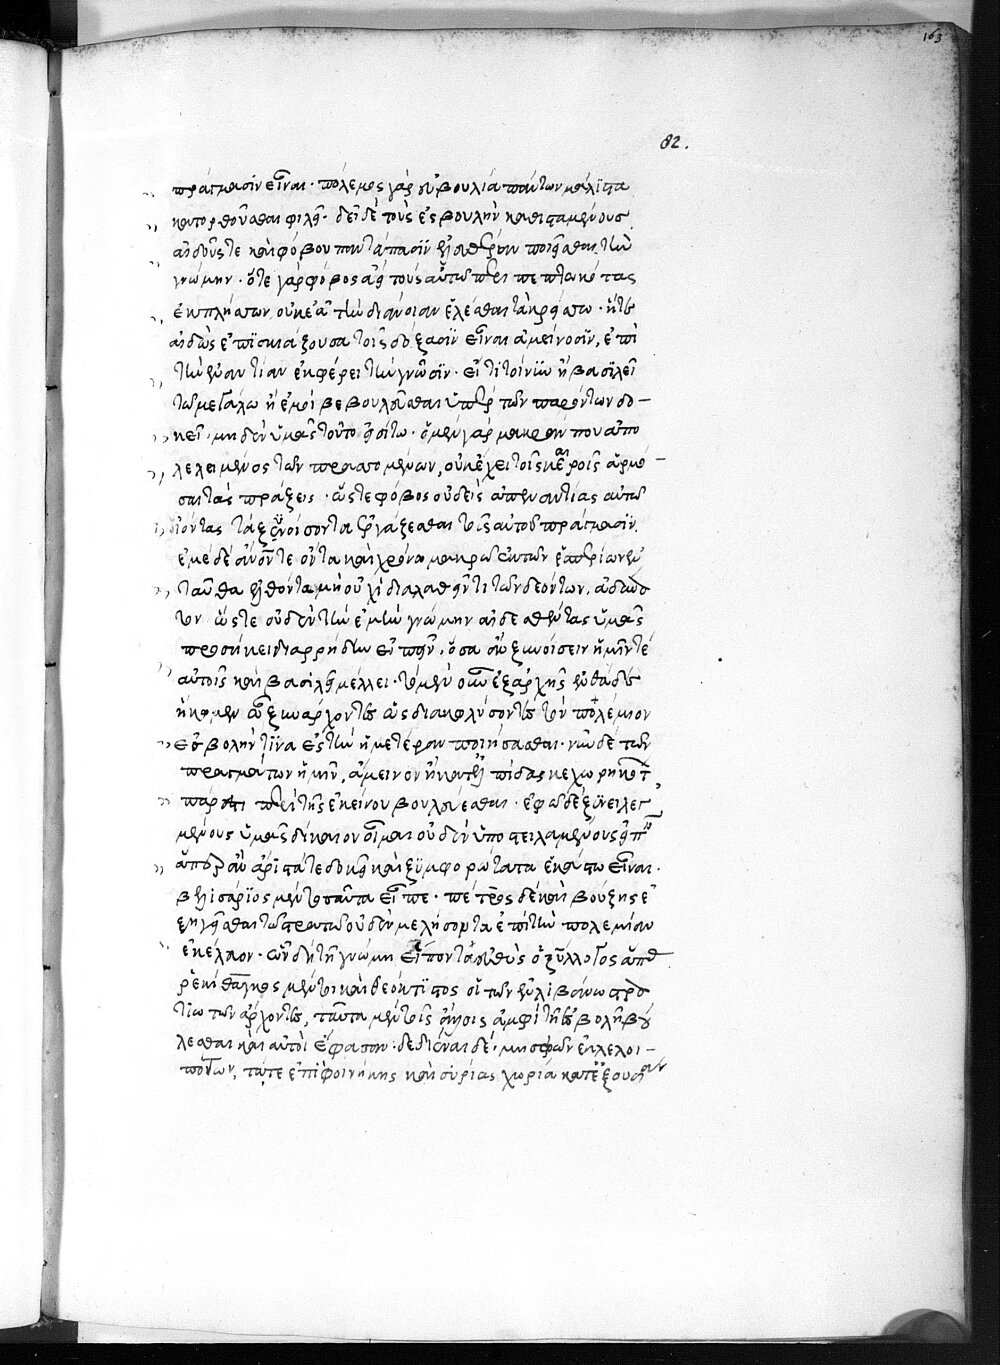 163
82.
πράγμασϊν εἶναι· πόλεμος γὰρ εὐβουλία πάντων μάλϊστα
κατορθοῦσθαι φιλεῖ· δεῖ δὲ τοὺς ἐς βουλὴν καθισταμένους
αἰδοῦς τε καὶ φόβου παντάπασϊν ἐλευθέραν ποιεῖσθαι τὴν
γνώμην· ὅτε γὰρ φόβος ἀεὶ τοὺς αὐτῶ περιπεπτωκότας
ἐκπλήσσων, οὐκ ἐᾶ τὴν διάνοιαν ἑλέσθαι τὰ κρείσσω· ἥτε
αἰδὼς ἐπϊσκιάζουσα τοῖς δόξασϊν εἶναι ἀμείνοσϊν, ἐπὶ
τὴν ἐναντίαν ἐκφέρει τὴν γνῶσϊν· εἴ τϊ τοίνϋν ἢ βασϊλεῖ
τῶ μεγάλω ἢ ἐμοὶ βεβουλεῦσθαι ὑπὲρ τῶν παρόντων δο-
κεῖ· μηδὲν ὑμᾶς τοῦτο εἰσίτω· ὁ μὲν γὰρ μακράν που ἀπο
λελειμμένος τῶν πρασσομένων, οὐκ ἔχει τοῖς καιροῖς ἁρμό-
σαι τὰς πράξεις· ὥστε φόβος οὐδεὶς ἀπεναντίας αὐτῶ
ἰόντας τὰ ξυνοίσοντα ἐργάζεσθαι τοῖς αὐτοῦ πράγμασϊν.
ἐμὲ δὲ ἄνθρωπόν τε ὄντα καὶ χρόνω μακρῶ ἐκ τῶν ἑσπερίων ἐν
ταῦθα ἐλθόντα μὴ οὐχὶ διαλαθεῖν τι τῶν δεόντων, ἀδύνα
τον· ὥστε οὐδὲν τὴν ἐμὴν γνώμην αἰδεσθέντας ὑμᾶς
προσήκει διαρρήδην εἰπεῖν, ὅσα ἂν ξυνοίσειν ἡμῖν τέ
αὐτοῖς καὶ βασιλεῖ μέλλει· τὸ μὲν οὖν ἐξαρχῆς ἐνθάδε
ἥκομεν ὦ ξυνάρχοντες ὡς διακωλύσοντες τὸν πολέμιον
ἐσβολήν τϊνα ἐς τὴν ἡμετέραν ποιήσασθαι· νῦν δὲ τῶν
πραγμάτων ἡμῖν, ἄμεινον ἢ κατ' ἐλπίδας κεχωρηκότων
πάρεστι περὶ τῆς ἐκείνου βουλεύεσθαι· ἐφ' ὧ δὲ ξϋνειλεγ
μένους ὑμᾶς δίκαιον οἶμαι οὐδὲν ὑποστειλαμένους εἰπεῖν
ἅπερ ἂν ἄριστά τε δοκεῖ καὶ ξϋμφορώτατα ἑκάστω εἶναι·
βελισάρϊος μὲν τοσαῦτα εἶπε· πέτρος δὲ καὶ βούζης ἐ
ξηγεῖσθαι τῶ στρατῶ οὐδὲν μελήσαντα ἐπὶ τὴν πολεμίαν
ἐκέλευον· ὧν δὴ τῆ γνώμη εἵποντο εὐθὺς ὁ ξύλλογος ἅπας
ῥεκίθαγγος μέντοι καὶ θεόκτϊστος οἱ τῶν ἐν λιβάνω στρα
τιωτῶν ἄρχοντες, ταῦτα μὲν τοῖς ἄλλοις ἀμφὶ τῆ ἐσβολῆ βού
λεσθαι καὶ αὐτοὶ ἔφασαν· δεδιέναι δὲ· μὴ σφῶν ἐκλελοι-
πότων, τά τε ἐπὶ φοινίκης καὶ συρίας χωρία κατ' ἐξουσίαν